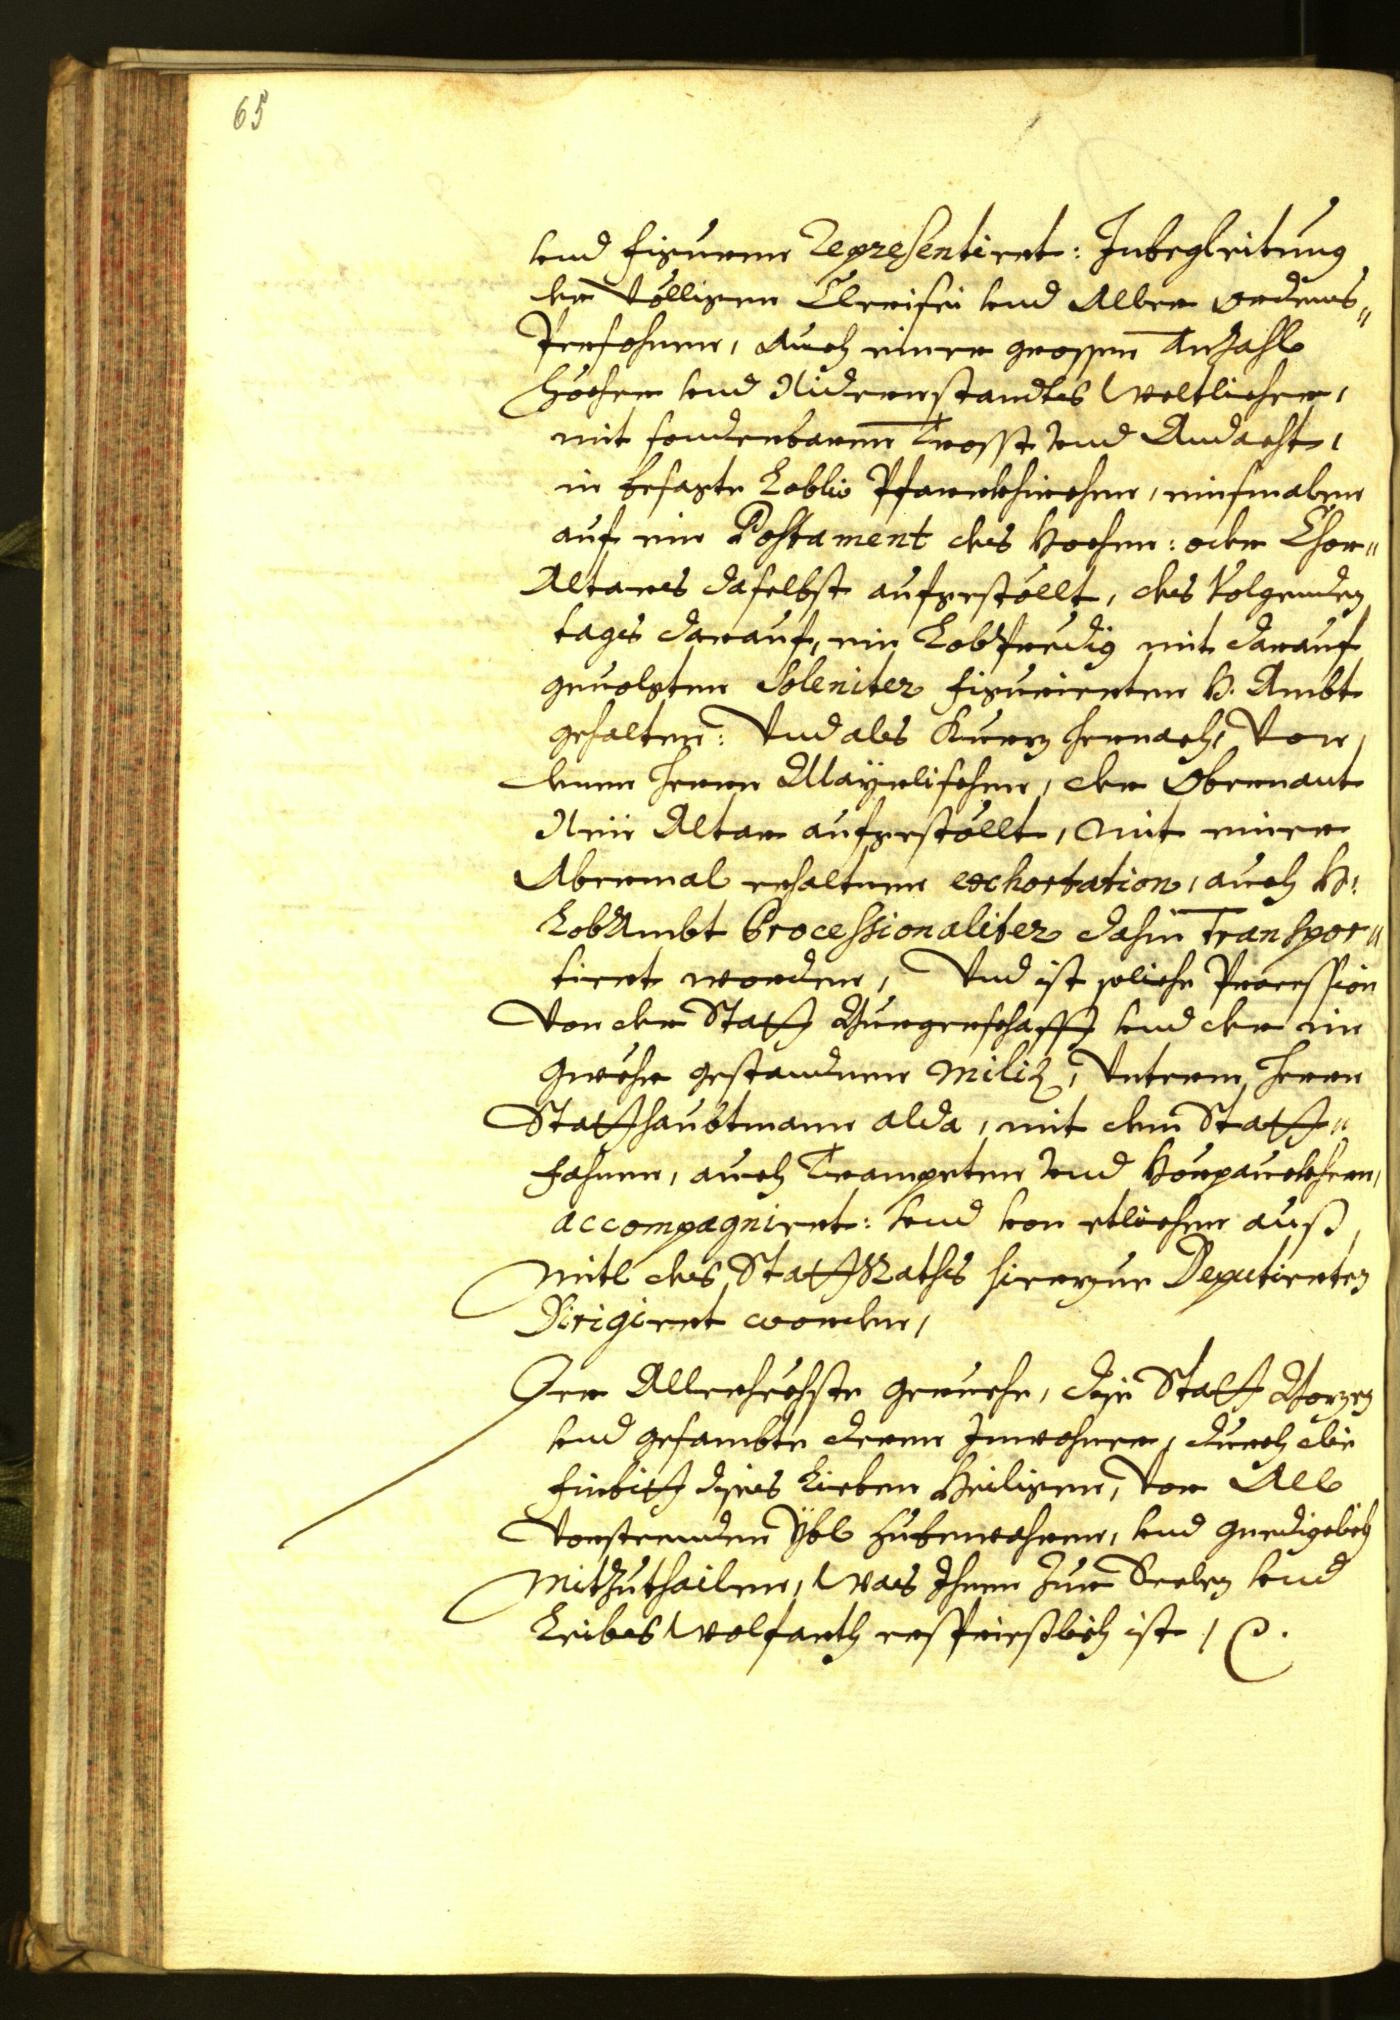 65
vnd figuren representiert: In begleitung
der völligen Clerisei vnd Aller Ordens„
Persohnen, auch einer grossen Anzahl
hochen vnd Niderenstandts Weltlichen,
mit sonderbarem Trosst vnd Andacht,
in besagte Lobl: Pfarrkhirchen, einsmalen
auf ein Postament des Hochen: oder Chor„
Altares daselbst aufgestöllt, des Volgenden
tages darauf, ein Lobpredig mit darauf
gevolgten Soleniter figurierten H. Ambt
gehalten: Vnd als Kurz hernach, Von
denen Herrn Mayrlischen, der Obernant
Neue Altar aufgestöllt, mit einer
Abermal gehaltnen exhortation, auch H:
LobAmbt Processionaliter dahin Transpor„
tiert worden, Vnd ist soliche Procession
Von der Statt Burgerschafft vnd der im
gwöhr gestandnen Miliz, Vnterm Herrn
Statthaubtmann alda, mit dem Statt„
fahnen, auch Trampeten vnd Hörpauckhen,
accompagniert: vnd von etlichen auß
mitl des StattRaths hierzue Deputierten
Dirigiert worden,
Der Allerhöchste geruehe, dise Statt Bozen
vnd gesambte deren Inwohner, durch die
fürbitt dises Lieben Heiligen, Vor All
Vorstenden Ybl zubewahren, vnd gnedigelich
mitzuthailen, Was Ihnen Zur Seelen vnd
Leibes Wolfarth ersprießlich ist /